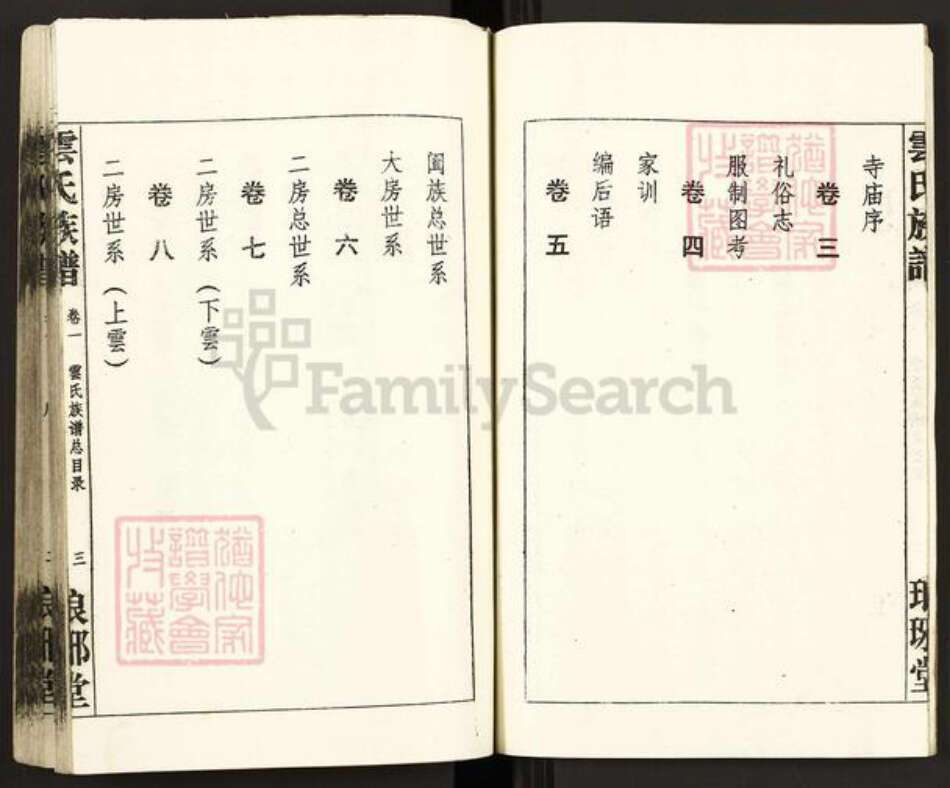 寺庙序
卷三
礼俗志
服制图考
卷四
家训
编后语
卷五
阖族总世系
大房世系
卷六
二房总世系
卷七
二房世系(下雲)
卷八
二房世系(上雲)
雲氏族谱
卷一
雲氏族谱总目录
三
琅邪堂
雲氏族譜
FamilySearch